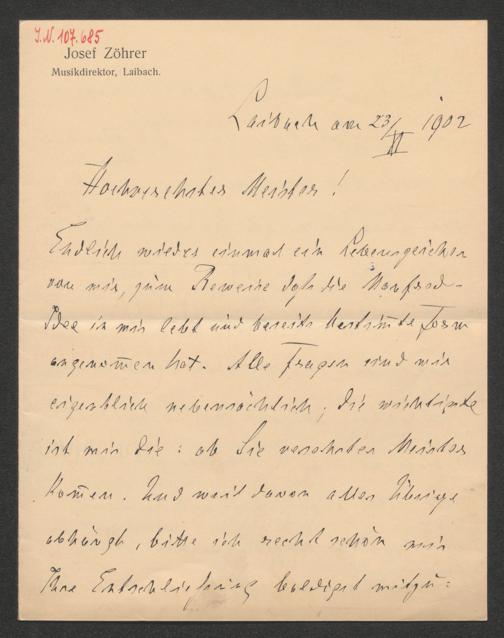 I.N. 107.685
Josef Zöhrer
Musikdirektor, Laibach.
Laibach am 23/XI 1902
Hochverehrter Meister!
Endlich wieder einmal ein Lebenszeichen
von mir, zum Beweise dſs die Manfred-
Idee in mir lebt und bereits bestim̅te Form
angenom̅en hat. Alle Fragen sind mir
eigentlich nebensächlich; die wichtigste
ist mir die: ob Sie verehrter Meister
kom̅en. Und weil davon alles Übrige
abhängt, bitte ich recht schön mir
Ihre Entschließung baldigst mitzu=